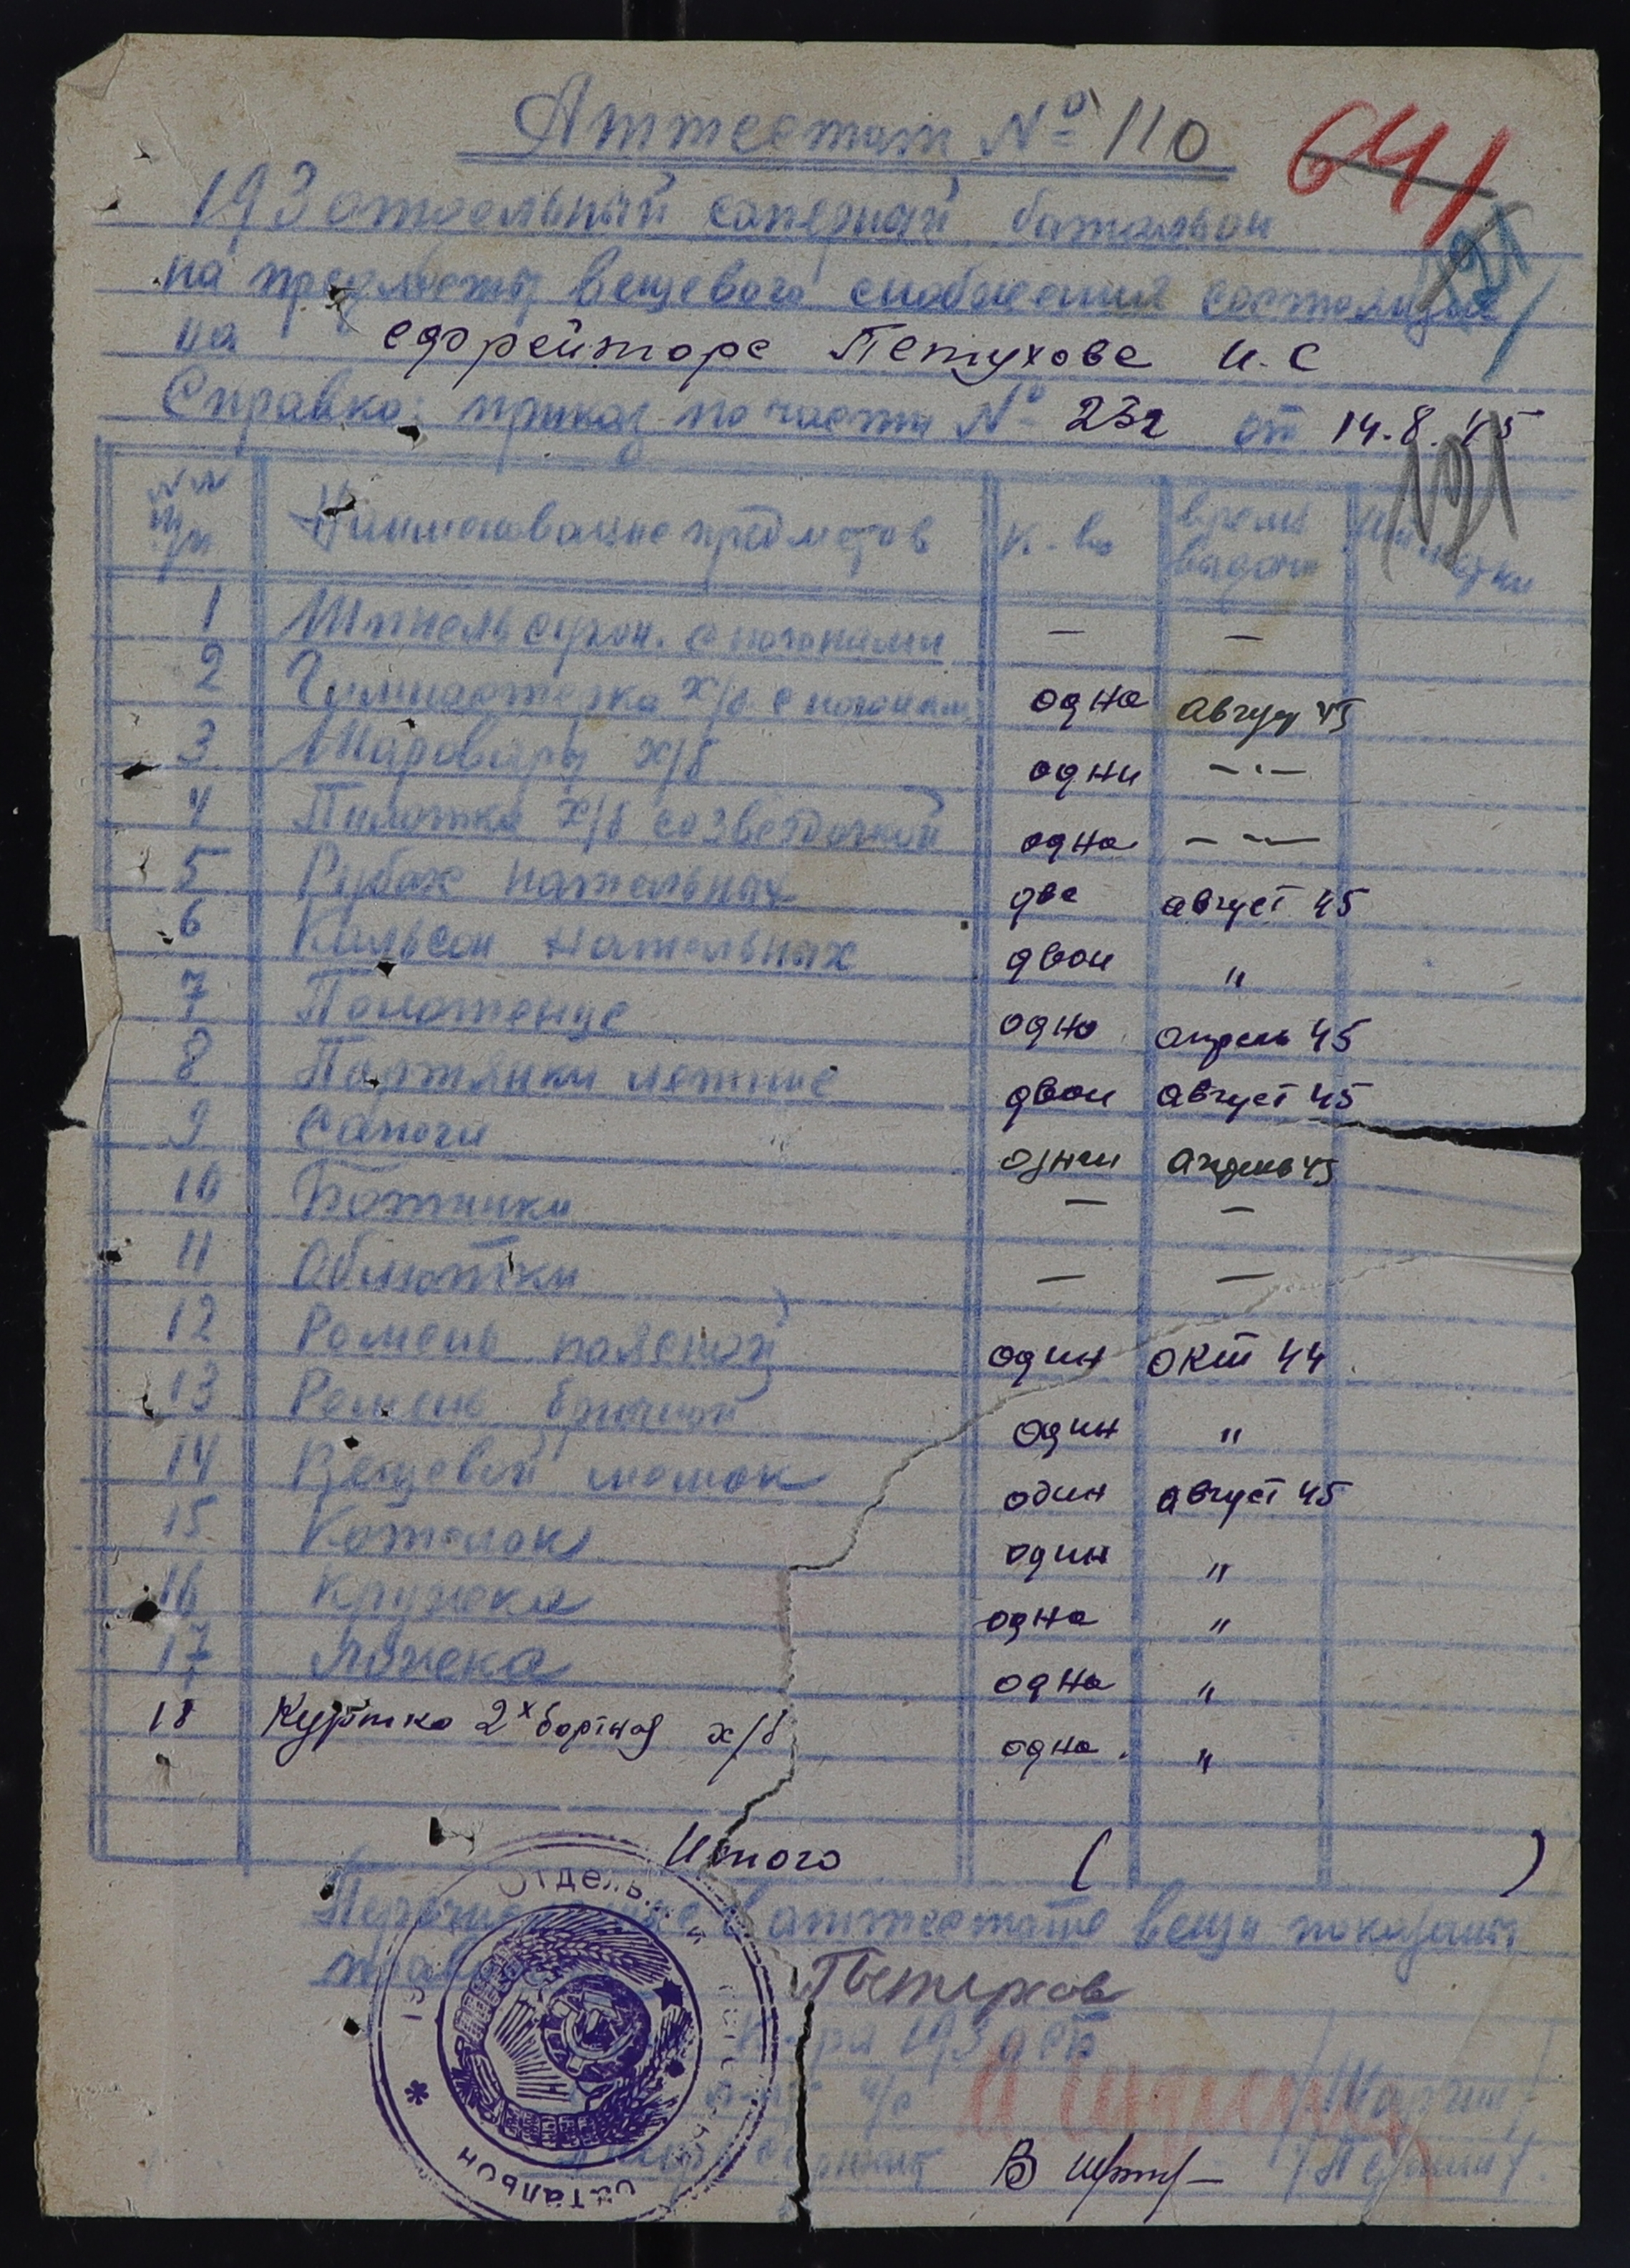 Аттестат № 110
641
193 отдельный саперный батальон
121
на предметы вещевого снабжения состоящие
на ефрейторе Петухове И. С
Справка: приказ по части № 232 от 14.8.45
121
№№ п/п Наименование предметов к-во время выдачи
1 Шинель сукон. с погонами — —
2 Гимнастерка х/б с погонам одна Август 45
3 Шаровары х/б одни —"—
4 Пилотка х/б со звездочкой одна —"—
5 Рубах нательных две август 45
6 Кальсон нательных двои "
7 Полотенце одно апрель 45
8 Портянки летние двои август 45
9 Сапоги одни Апрель 45
10 Ботинки — —
11 Обмотки — —
12 Ремень поясной один окт 44
13 Ремень брючной один "
14 Вещевой мешок один август 45
15 Котелок один "
16 Кружка одна "
17 Ложка одна "
18 Куртка 2х бортная х/б одна "
Итого ( )
в аттестате вещи показаны
Петухов
к-ра 193 осб
В
Отдель
батальон